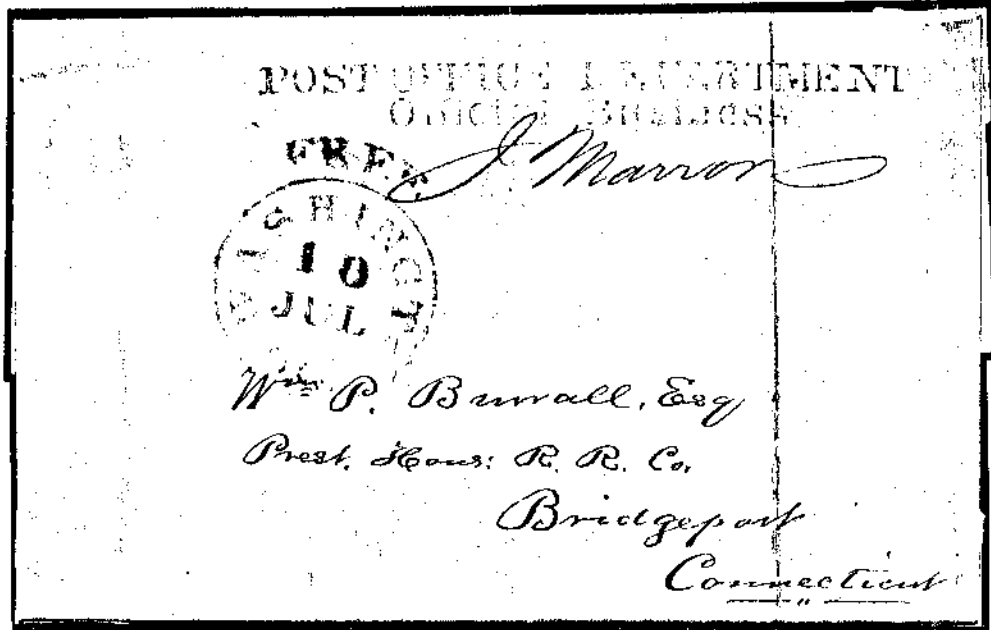 POST OFFICE DEPARTMENT
Official Business
FREE
J Marron
WASHINGT
10
JUL
Wm P. Burrall, Esq
Prest. Hous: R. R. Co.
Bridgeport
Connecticut